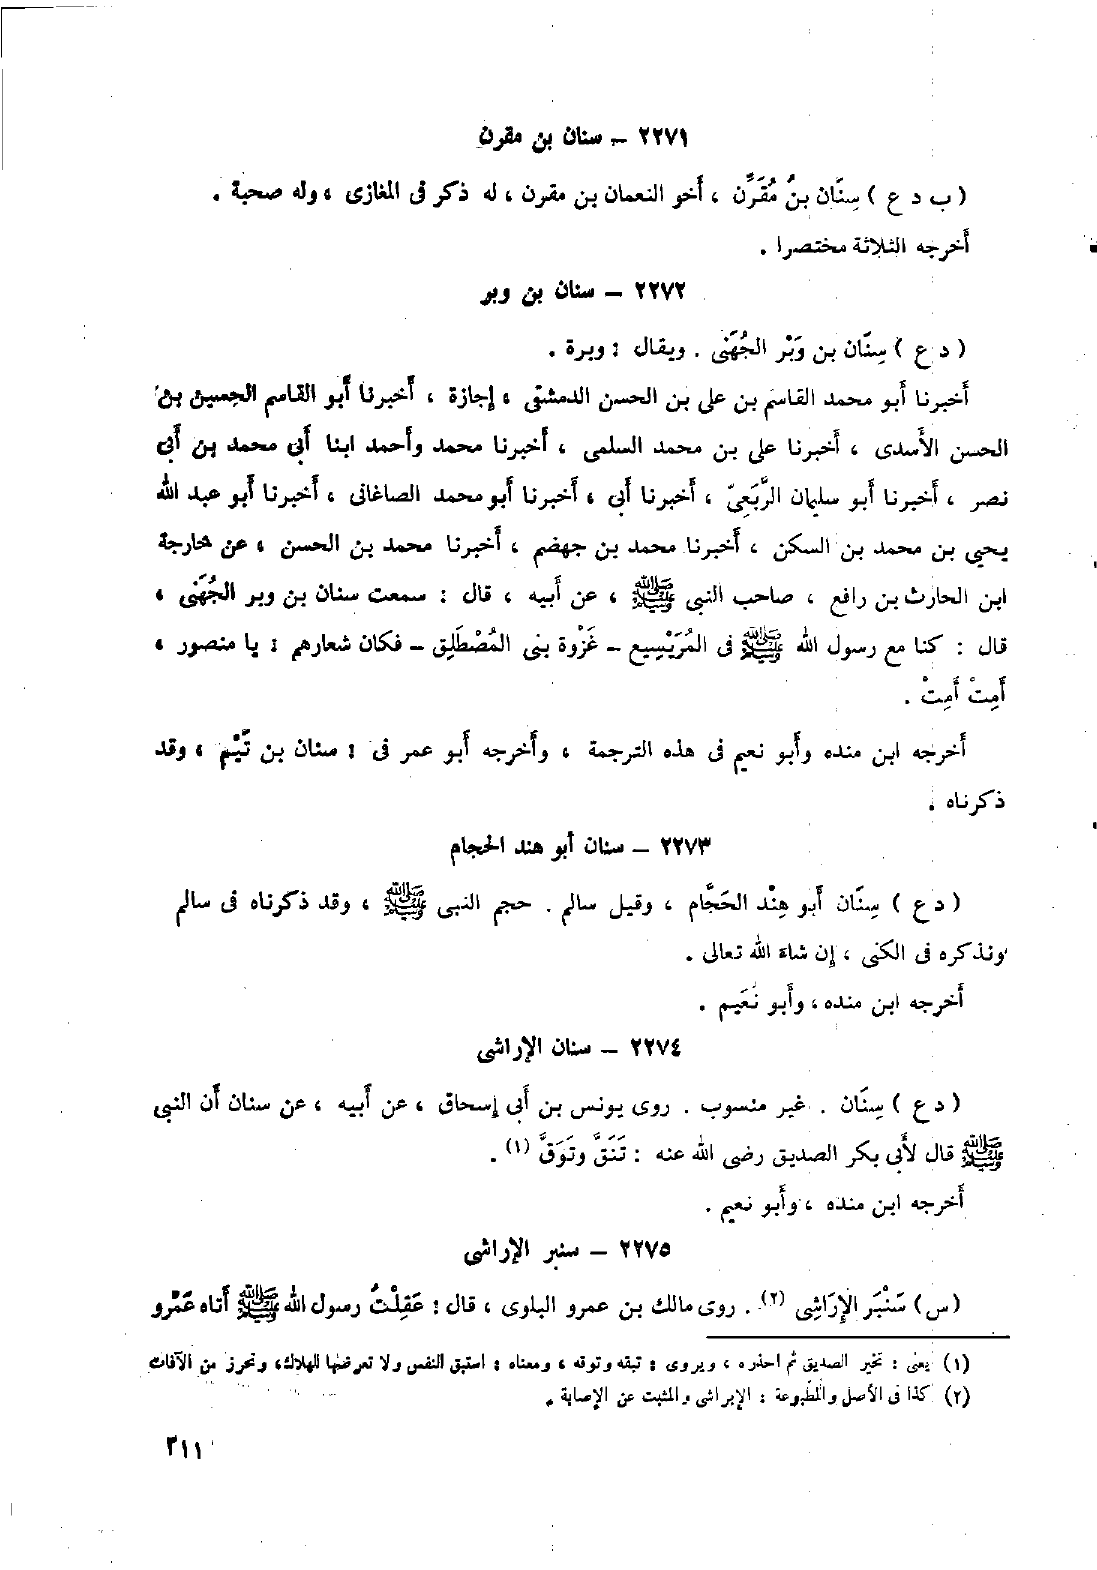 ٢٢٧١ – سنان بن مقرن
( ب د ع ) سِنَان بنُ مُقَرِّن ، أَخو النعمان بن مقرن ، له ذكر فى المغازى ، وله صحبة .
أَخرجه الثلاثة مختصرا .
٢٢٧٢ – سنان بن وبر
( د ع ) سِنَان بن وَبْر الجُهَنى . ويقال : وبرة .
أَخبرنا أَبو محمد القاسم بن على بن الحسن الدمشقى ، إجازة ، أَخبرنا أَبو القاسم الحسين بن
الحسن الأَسدى ، أَخبرنا على بن محمد السلمى ، أَخبرنا محمد وأَحمد ابنا أَبى محمد بن أَبى
نصر ، أَخبرنا أَبو سليمان الرَّبَعِىّ ، أَخبرنا أَبى ، أَخبرنا أَبو محمد الصاغانى ، أَخبرنا أَبو عبد الله
يحيى بن محمد بن السكن ، أَخبرنا محمد بن جهضم ، أَخبرنا محمد بن الحسن ، عن خارجة
ابن الحارث بن رافع ، صاحب النبى ﷺ ، عن أَبيه ، قال : سمعت سنان بن وبر الجُهَنى ،
قال : كنا مع رسول الله ﷺ فى المُرَيْسِيع – غَزْوة بنى المُصْطَلِق – فكان شعارهم : يا منصور ،
أَمِتْ أَمِتْ .
أَخرجه ابن منده وأَبو نعيم فى هذه الترجمة ، وأَخرجه أَبو عمر فى : سنان بن تَيْم ، وقد
ذكرناه .
٢٢٧٣ – سنان أبو هند الحجام
( د ع ) سِنَان أَبو هِنْد الحَجَّام ، وقيل سالم . حجم النبى ﷺ ، وقد ذكرناه فى سالم
ونذكره فى الكنى ، إن شاء الله تعالى .
أَخرجه ابن منده ، وأَبو نُعَيم .
٢٢٧٤ – سنان الإراشى
( د ع ) سِنَان . غير منسوب . روى يونس بن أَبى إسحاق ، عن أَبيه ، عن سنان أَن النبى
ﷺ قال لأَبى بكر الصديق رضى الله عنه : تَنَقَّ وتَوَقَّ (١) .
أَخرجه ابن منده ، وأَبو نعيم .
٢٢٧٥ – سنبر الإراشى
(س) سَنْبَر الإِرَاشِى (٢) . روى مالك بن عمرو البلوى ، قال : عَقِلْتُ رسول الله ﷺ أَتاه عَمْرو
(١) يعنى : تخير الصديق ثم احذره ، ويروى : تبقه وتوقه ، ومعناه : استبق النفس ولا تعرضها للهلاك ، وتحرز من الآفات
(٢) كذا فى الأصل والمطبوعة : الإبراشى والمثبت عن الإصابة .
٣١١